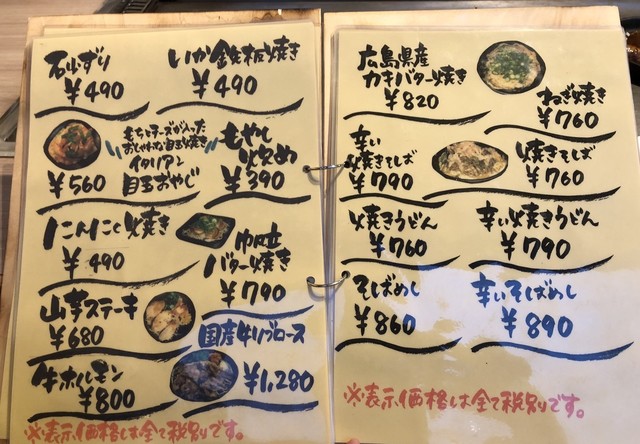 石ずり
¥490
いか鉄板焼き
¥490
もちとチーズが入った
おしゃれな目玉焼き
イタリアン
目玉おやじ
¥560
もやし
炒め
¥390
にんにく焼き
¥490
帆立
バター焼き
¥790
山芋ステーキ
¥680
国産牛リブロース
¥1,280
牛ホルモン
¥800
※表示価格は全て税別です。
広島県産
カキバター焼き
¥820
ねぎ焼き
¥760
辛い
焼きそば
¥790
焼きそば
¥760
焼きうどん
¥760
辛い焼きうどん
¥790
そばめし
¥860
辛いそばめし
¥890
※表示価格は全て税別です。